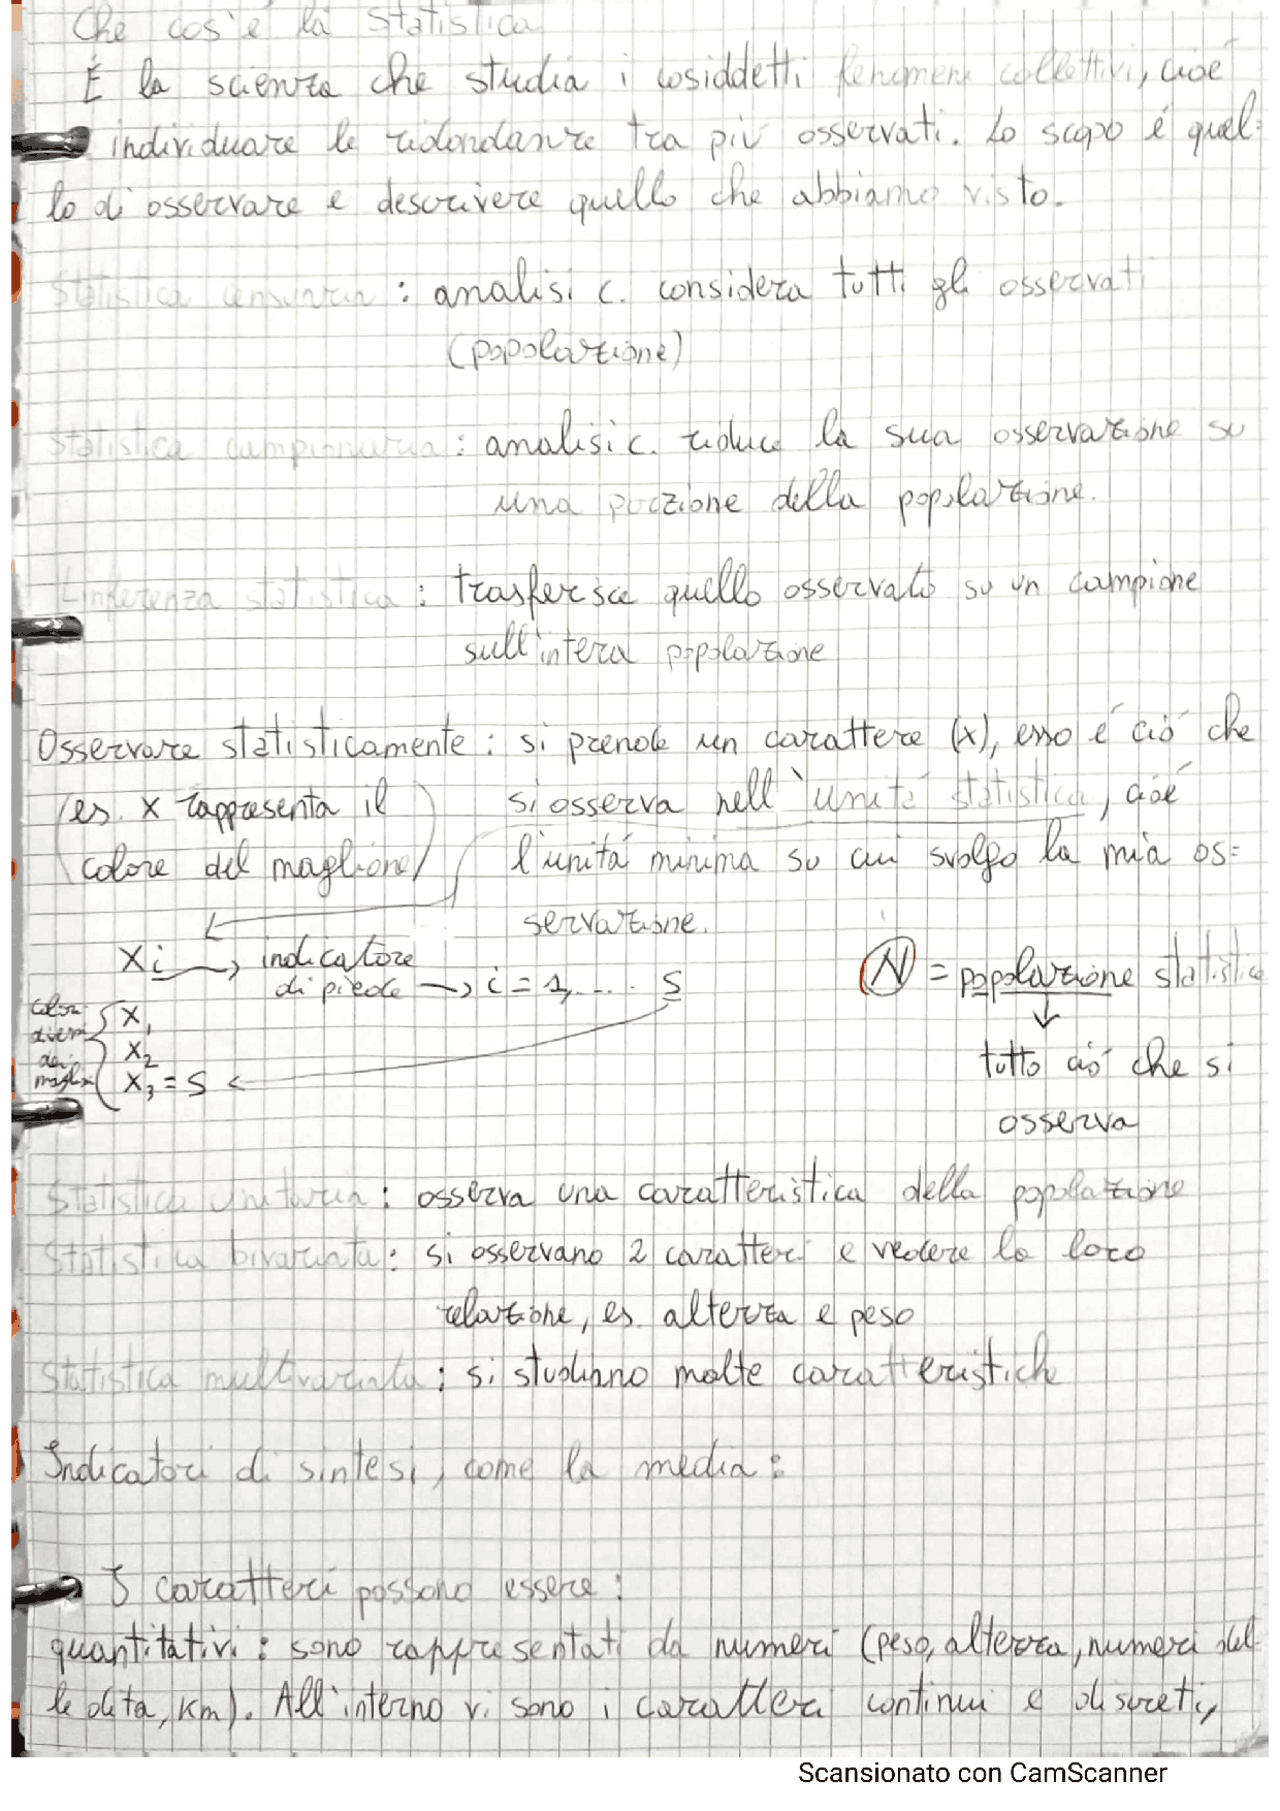 Che cos'é la statistica
É la scienza che studia i cosiddetti fenomeni collettivi, cioé
individuare le ridondanze tra piú osservati. Lo scopo é quel=
lo di osservare e descrivere quello che abbiamo visto.
Statistica censuaria : analisi c. considera tutti gli osservati
(popolazione)
Statistica campionaria : analisi c. riduce la sua osservazione su
una porzione della popolazione.
L'inferenza statistica : trasferisce quello osservato su un campione
sull'intera popolazione
Osservare statisticamente : si prende un carattere (x), esso é ció che
(es. x rappresenta il
si osserva nell'unitá statistica, cioé
colore del maglione)
l'unitá minima su cui svolgo la mia os=
servazione.
Xi → indicatore
di piede → i = 1,.... S
N = popolazione statistica
colori
diversi
dei
maglioni
X1
X2
X3 = S
tutto ció che si
osserva
Statistica unitaria : osserva una caratteristica della popolazione
Statistica bivariata : si osservano 2 caratteri e vedere la loro
relazione, es. altezza e peso
Statistica multivariata : si studiano molte caratteristiche
Indicatori di sintesi, come la media :
I caratteri possono essere :
quantitativi : sono rappresentati da numeri (peso, altezza, numeri del=
le dita, Km). All'interno vi sono i caratteri continui e discreti,
Scansionato con CamScanner